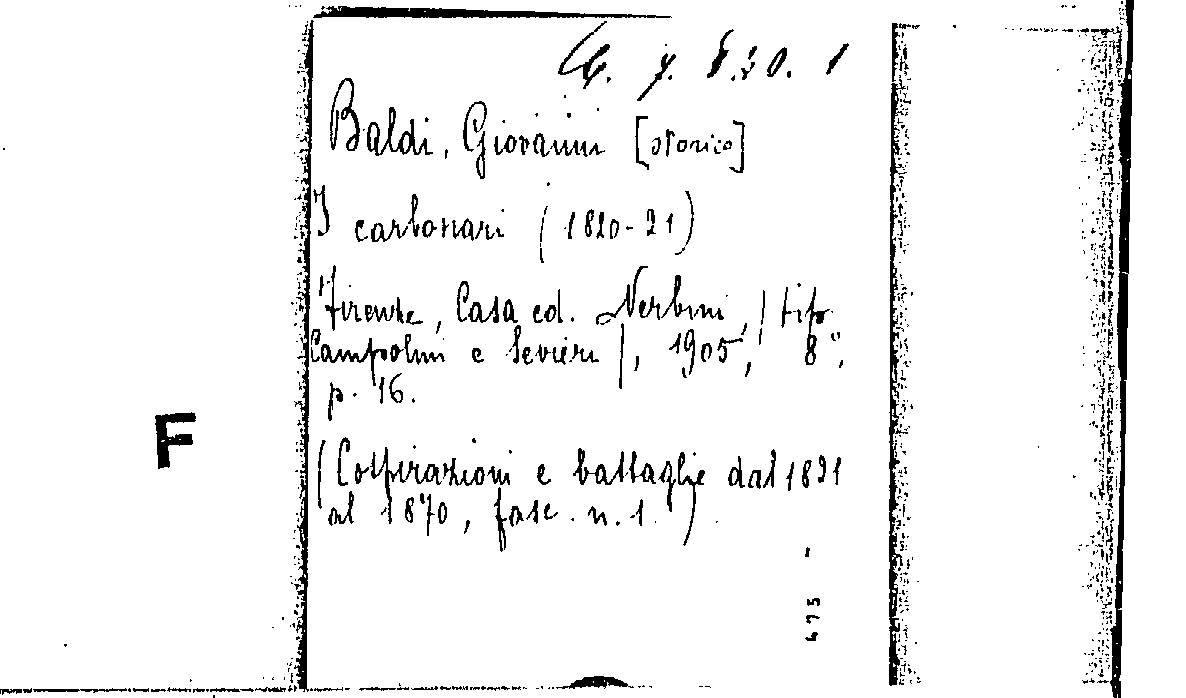 7. 8.20. 1
Baldi, Giovanni [storico]
I carbonari (1820-21)
Firenze, Casa ed. Nerbini, | tip.
Campolmi e Sevieri |, 1905, 8°,
p. 16.
(Cospirazioni e battaglie dal 1821
al 1870, fasc. n. 1.)
F
475